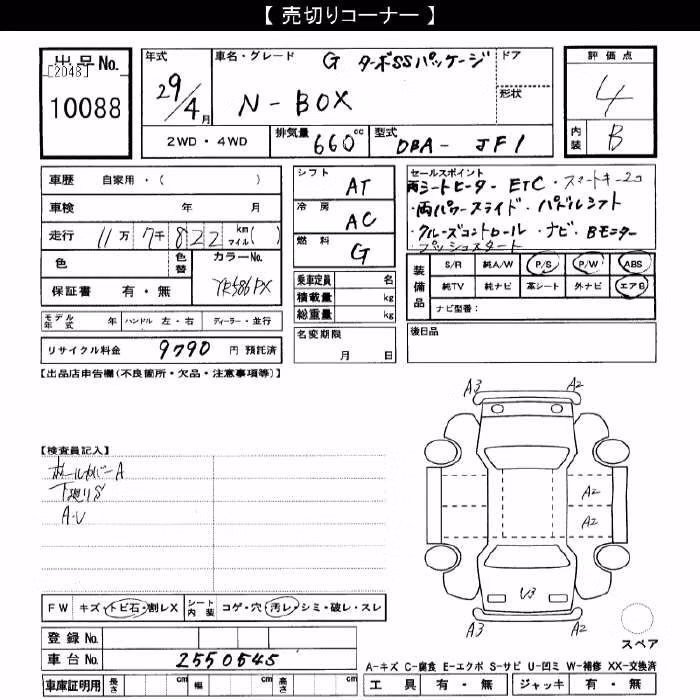 【 売切りコーナー 】
出品No.
[2048]
10088
年式
29/4月
車名・グレード
G ターボSSパッケージ
N-BOX
ドア
形状
評価点
4
内装
B
2WD・4WD
排気量
660cc
型式
DBA- JF1
車歴 自家用・( )
車検 年 月
走行 11万 7千 8 2 2 km マイル( )
色
色替
カラーNo.
YR586PX
保証書 有・無
モデル年式 年
ハンドル 左・右
ディーラー・並行
リサイクル料金 9790 円 預託済
シフト AT
冷房 AC
燃料 G
乗車定員 名
積載量 kg
総重量 kg
名変期限
月 日
セールスポイント
両シートヒーター ETC・スマートキー2コ
・両パワースライド・パドルシフト
・クルーズコントロール・ナビ・Bモニター
プッシュスタート
装備品
S/R 純A/W P/S P/W ABS
純TV 純ナビ 革シート 外ナビ エアB
ナビ型番:
後日品
【出品店申告欄(不良箇所・欠品・注意事項等)】
【検査員記入】
ホールカバーA
下廻りS
A・U
A3 A2
A2
A2
U3
A3 A2
スペア
FW キズ・トビ石・割レX
シート内装 コゲ・穴・汚レ・シミ・破レ・スレ
登録 No.
車台 No. 2550545
車庫証明用 長さ cm 幅 cm 高さ cm
A-キズ C-腐食 E-エクボ S-サビ U-凹ミ W-補修 XX-交換済
工具 有・無 ジャッキ 有・無